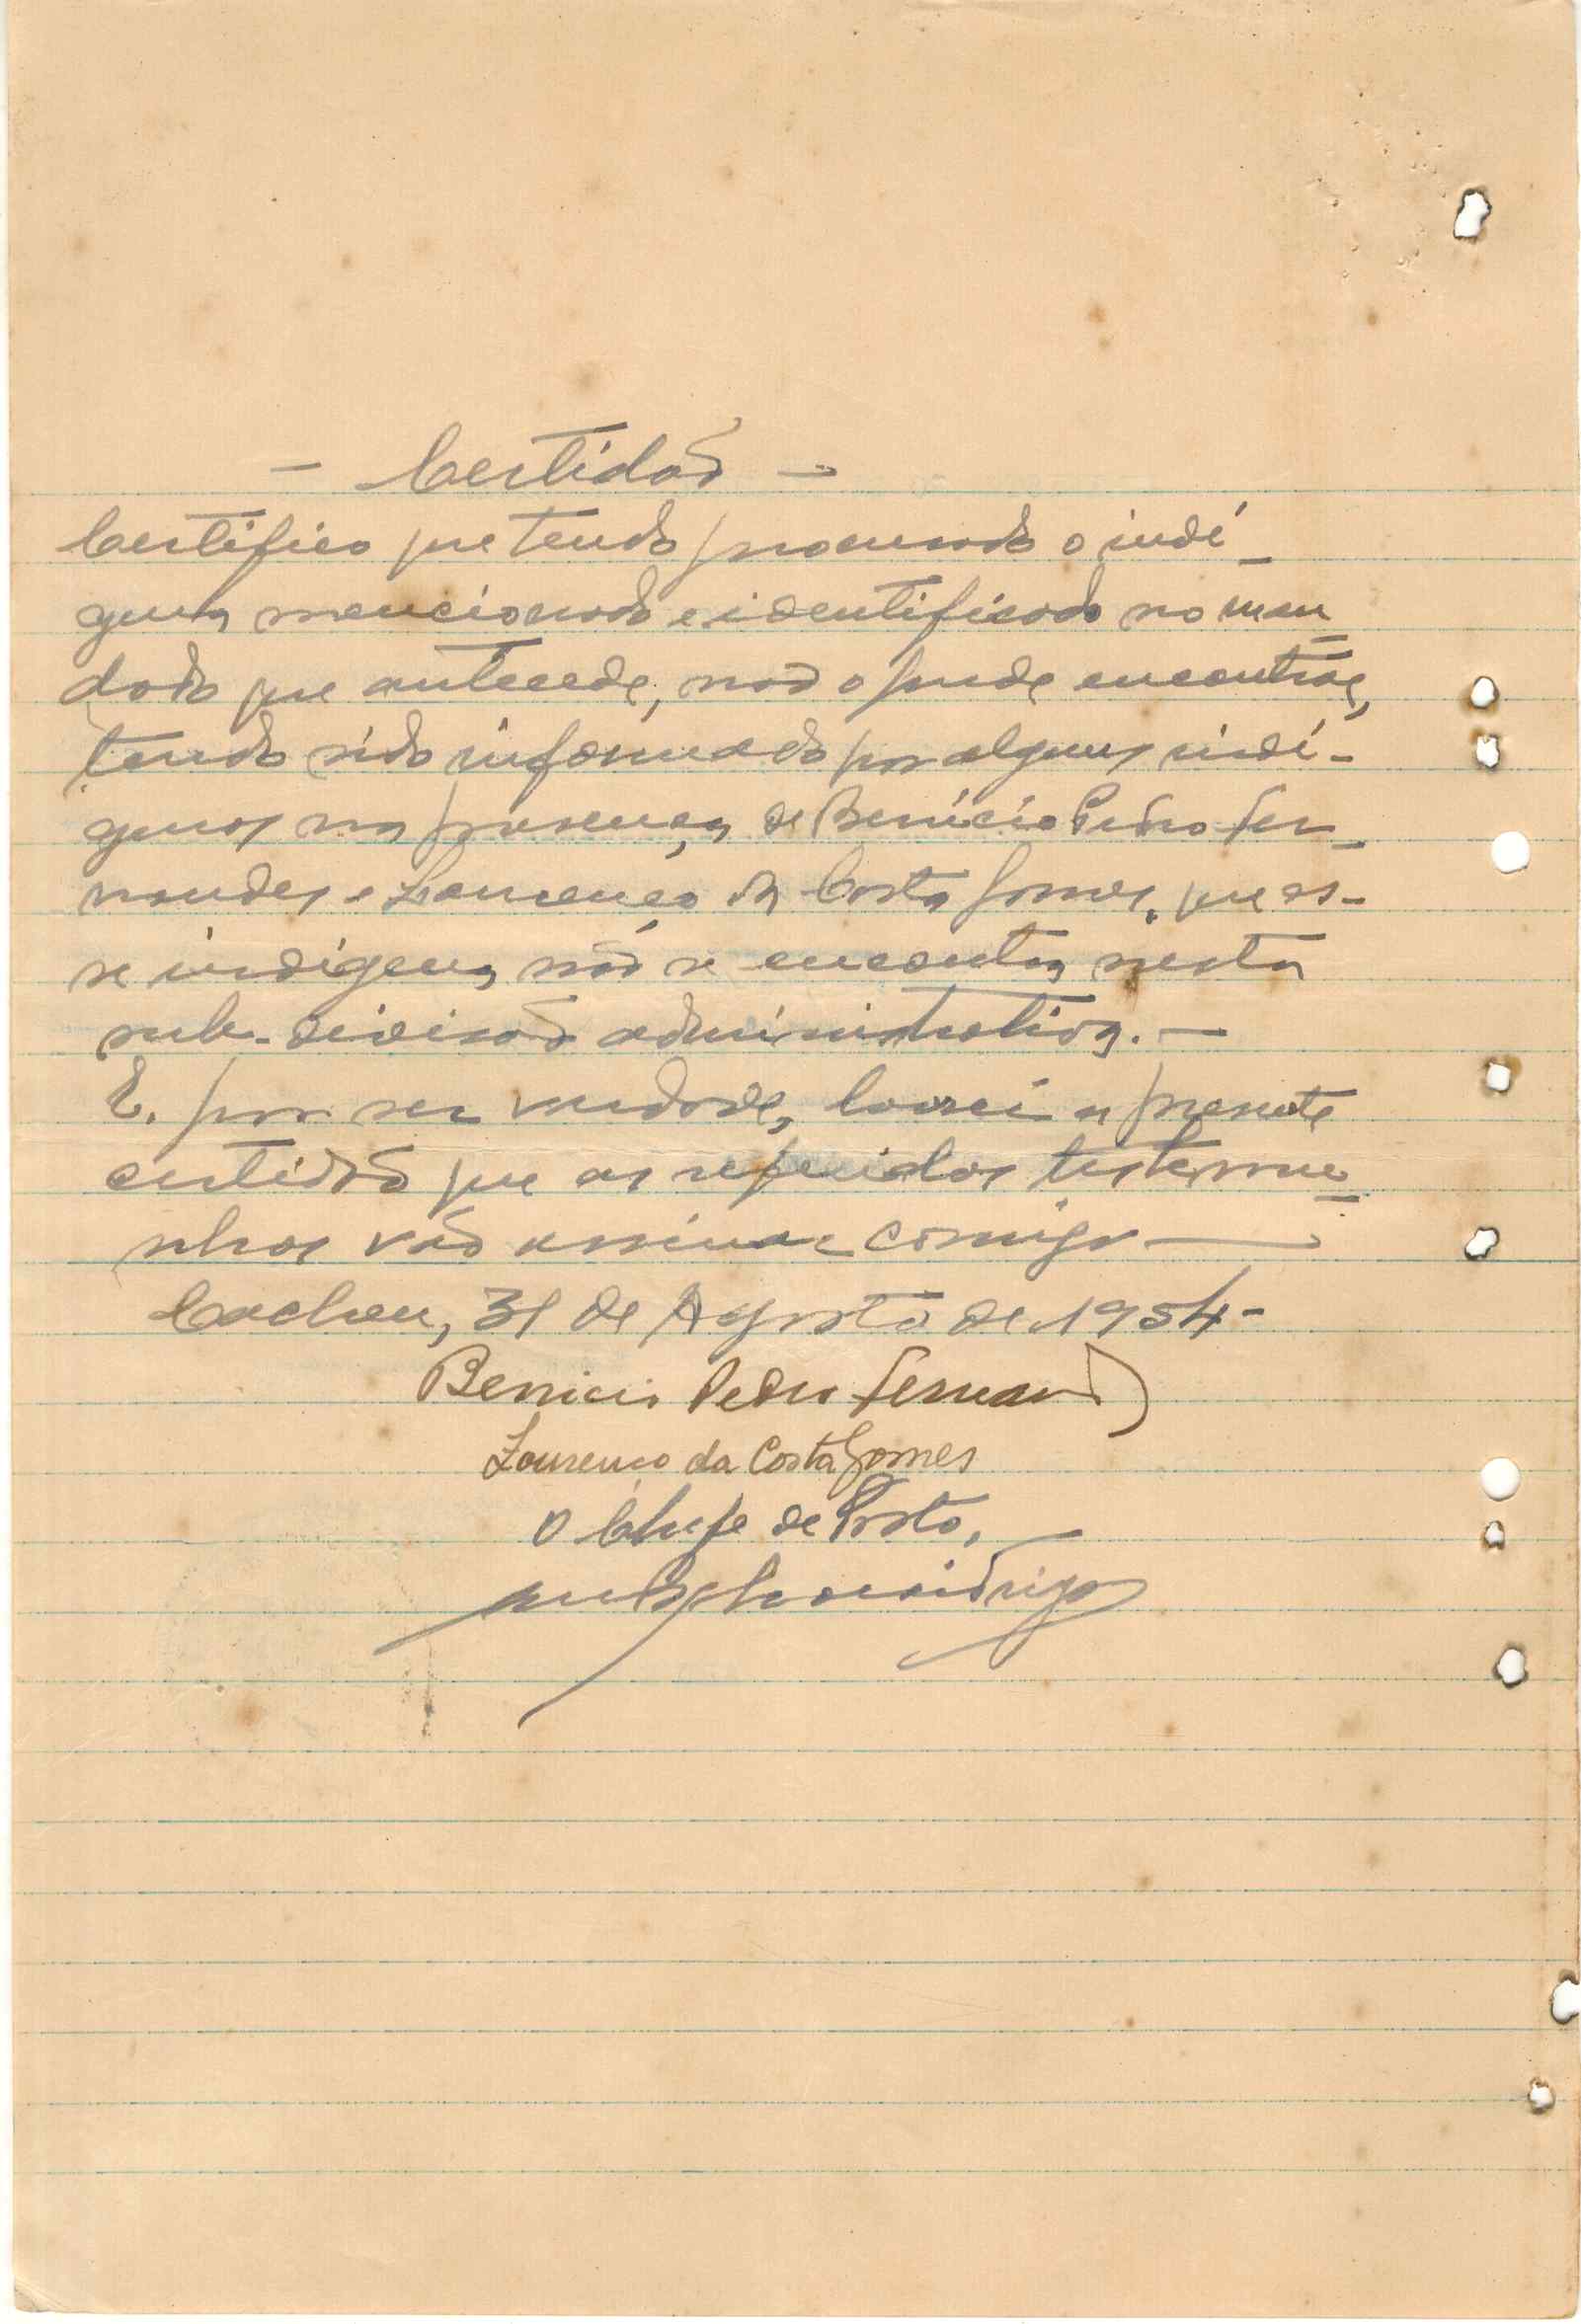 - Certidão -
Certifico que tendo procurado o indí-
gena mencionado e identificado no man
dado que antecede, não o pude encontrar,
tendo sido informado por alguns indí-
genas na presença de Benício Pedro Fer
nandes e Lourenço da Costa Gomes, que es-
se indígena não se encontra nesta
sub-divisão administrativa. -
E, por ser verdade, lavrei a presente
certidão que as referidas testemu
nhas vão assinar comigo
Cacheu, 31 de Agosto de 1954-
Benicio Pedro Fernand
Lourenço da Costa Gomes
O Chefe de Posto,